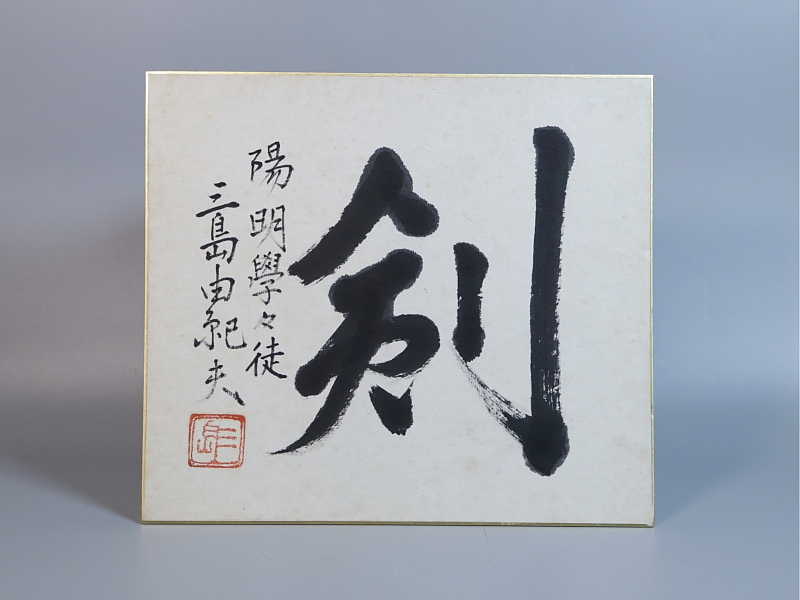 剣
陽明學々徒
三島由紀夫